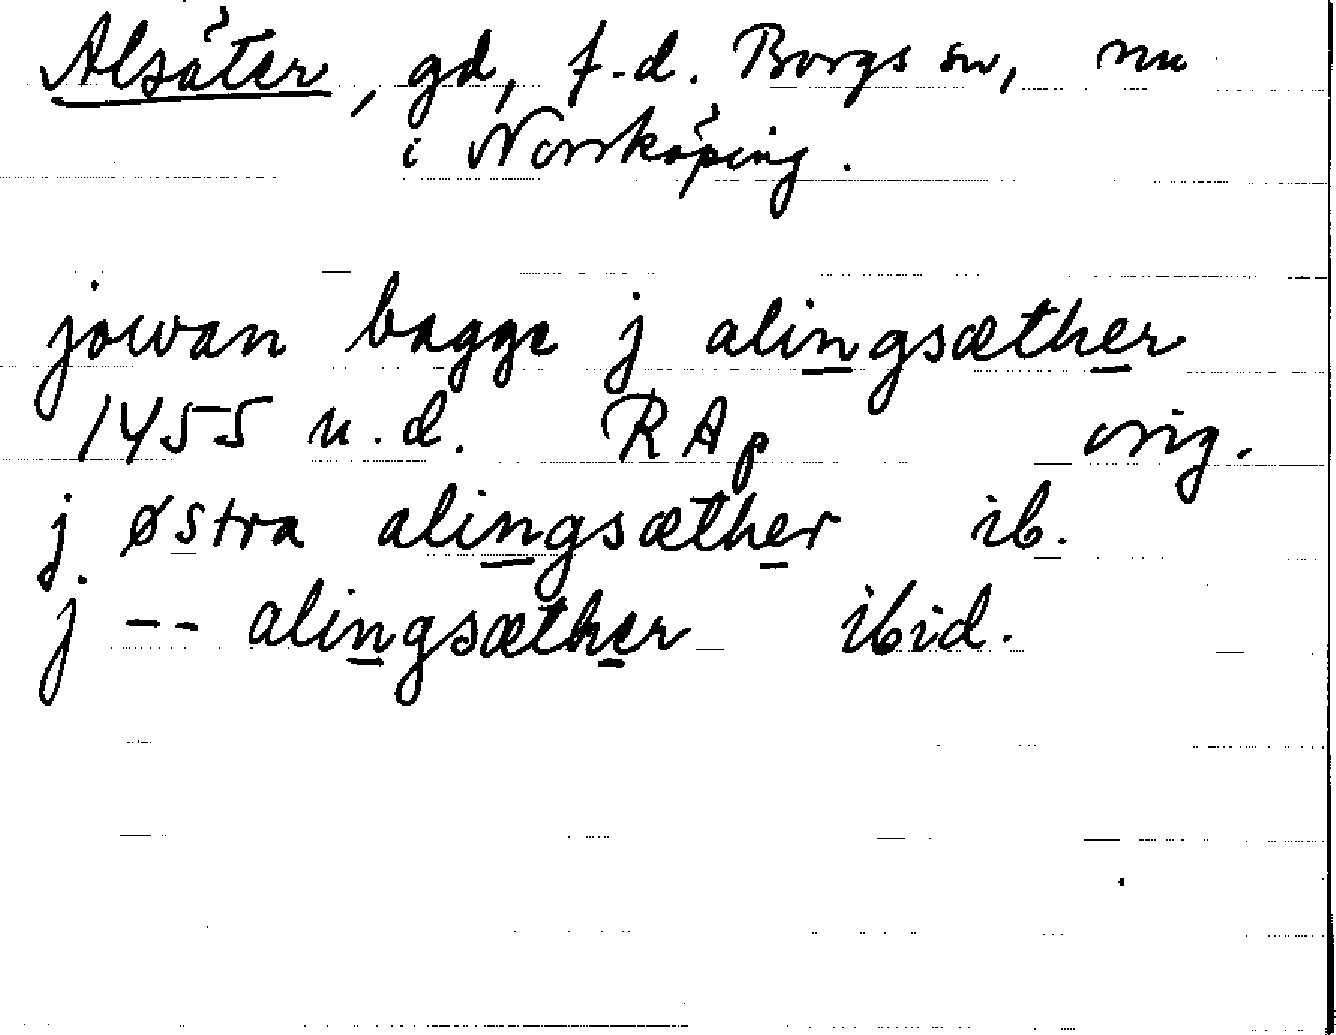 Alsäter, gd, f.d. Borgs sn, nu
i Norrköping.
jowan bagge j alingsæther
1455 u.d. RAp orig.
j østra alingsæther ib.
j -- alingsæther ibid.